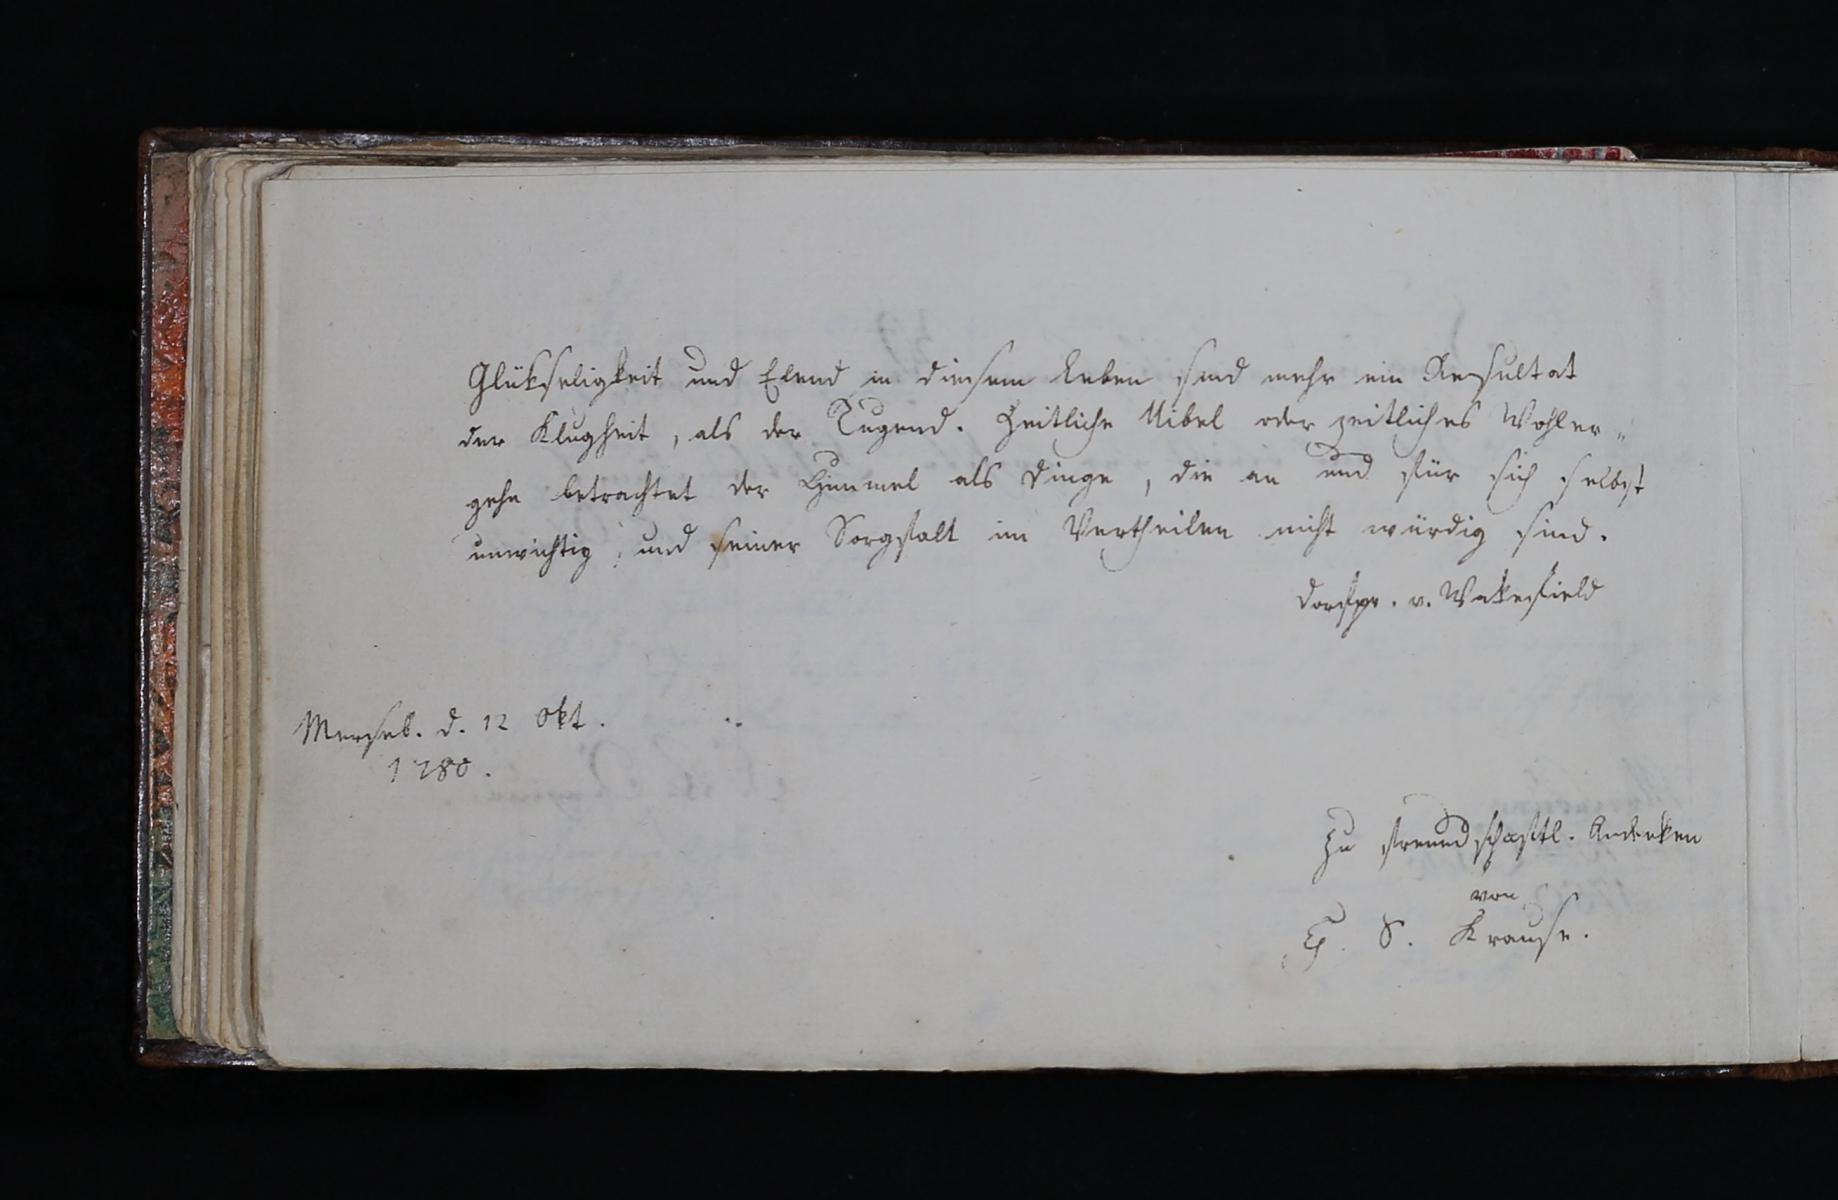 Glükseligkeit und Elend in diesem Leben sind mehr ein Resultat
der Klugheit, als der Tugend. Zeitliche Uibel oder zeitliches Wohler„
gehn betrachtet der Himmel als Dinge, die an und für sich selbst
unwichtig, und seiner Sorgfalt im Vertheilen nicht würdig sind.
Dorfpr. v. Wakefield
Merseb. d. 12 Okt.
1780.
Zu freundschaftl. Andenken
von
S. Krause.